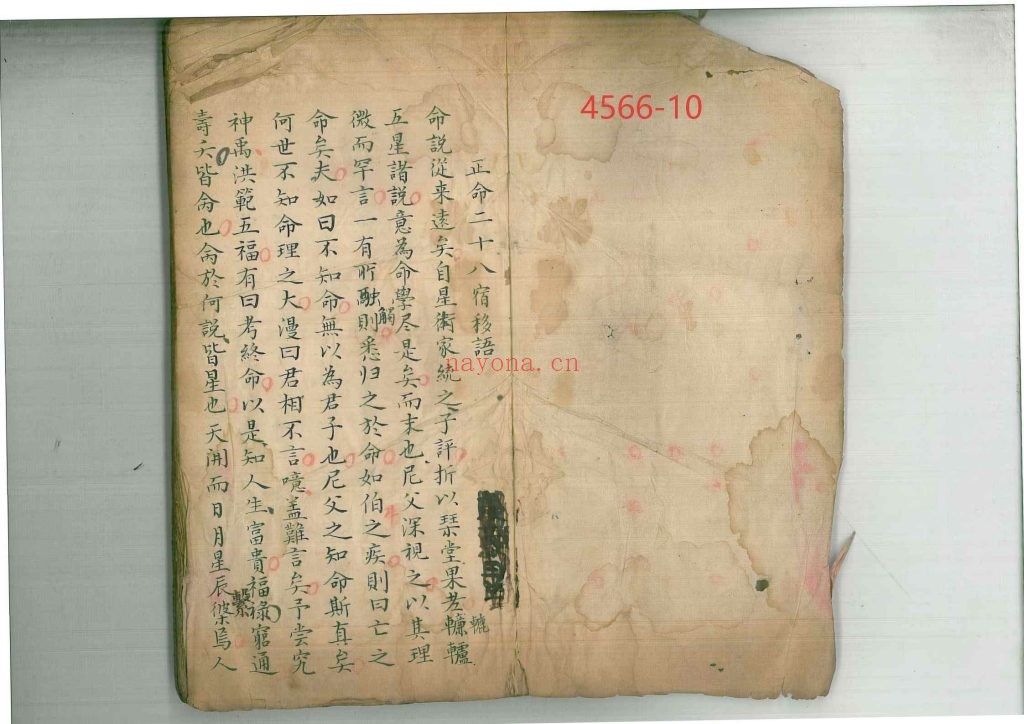 4566-10
nayona.cn
正命二十八宿移語
命説從来遠矣自星術家統之子評折以琹堂果老轆轤
轆
五星諸説意為命學尽是矣而末也尼父深視之以其理
微而罕言一有所融則悉归之於命如伯之疾則曰亡之
解
命矣夫如曰不知命無以為君子也尼父之知命斯真矣
何世不知命理之大漫曰君相不言噫盖難言矣予嘗究
神禹洪範五福有曰考終命以是知人生富貴福禄窮通
壽夭皆命也命於何説皆星也天開而日月星辰燦焉人
繫